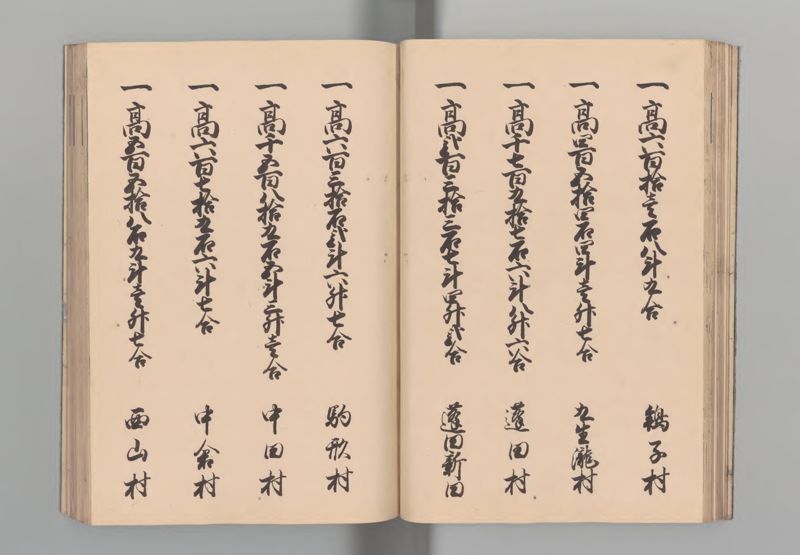 一高六百拾壱石八斗五合 鍋子村
一高四百五拾四石四斗壱升七合 九生瀧村
一高千七百五拾七石六斗八升六合 蓬田村
一高弐百三拾三石七斗四升弐合 蓬田新田
一高六百三拾石弐斗六升七合 駒形村
一高千五百八拾五石五斗三升壱合 中田村
一高六百七拾五石六斗七合 中倉村
一高五百五拾八石九斗壱升七合 西山村